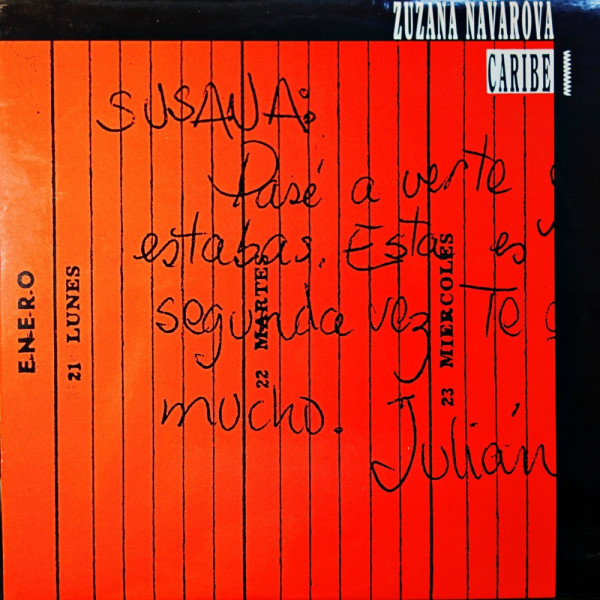 ZUZANA NAVAROVA
CARIBE
SUSANA:
Pasé a verte y
estabas. Esta es
segunda vez Te q
mucho.
Julián
E-N-E-R-O
21 LUNES
22 MARTES
23 MIERCOLES